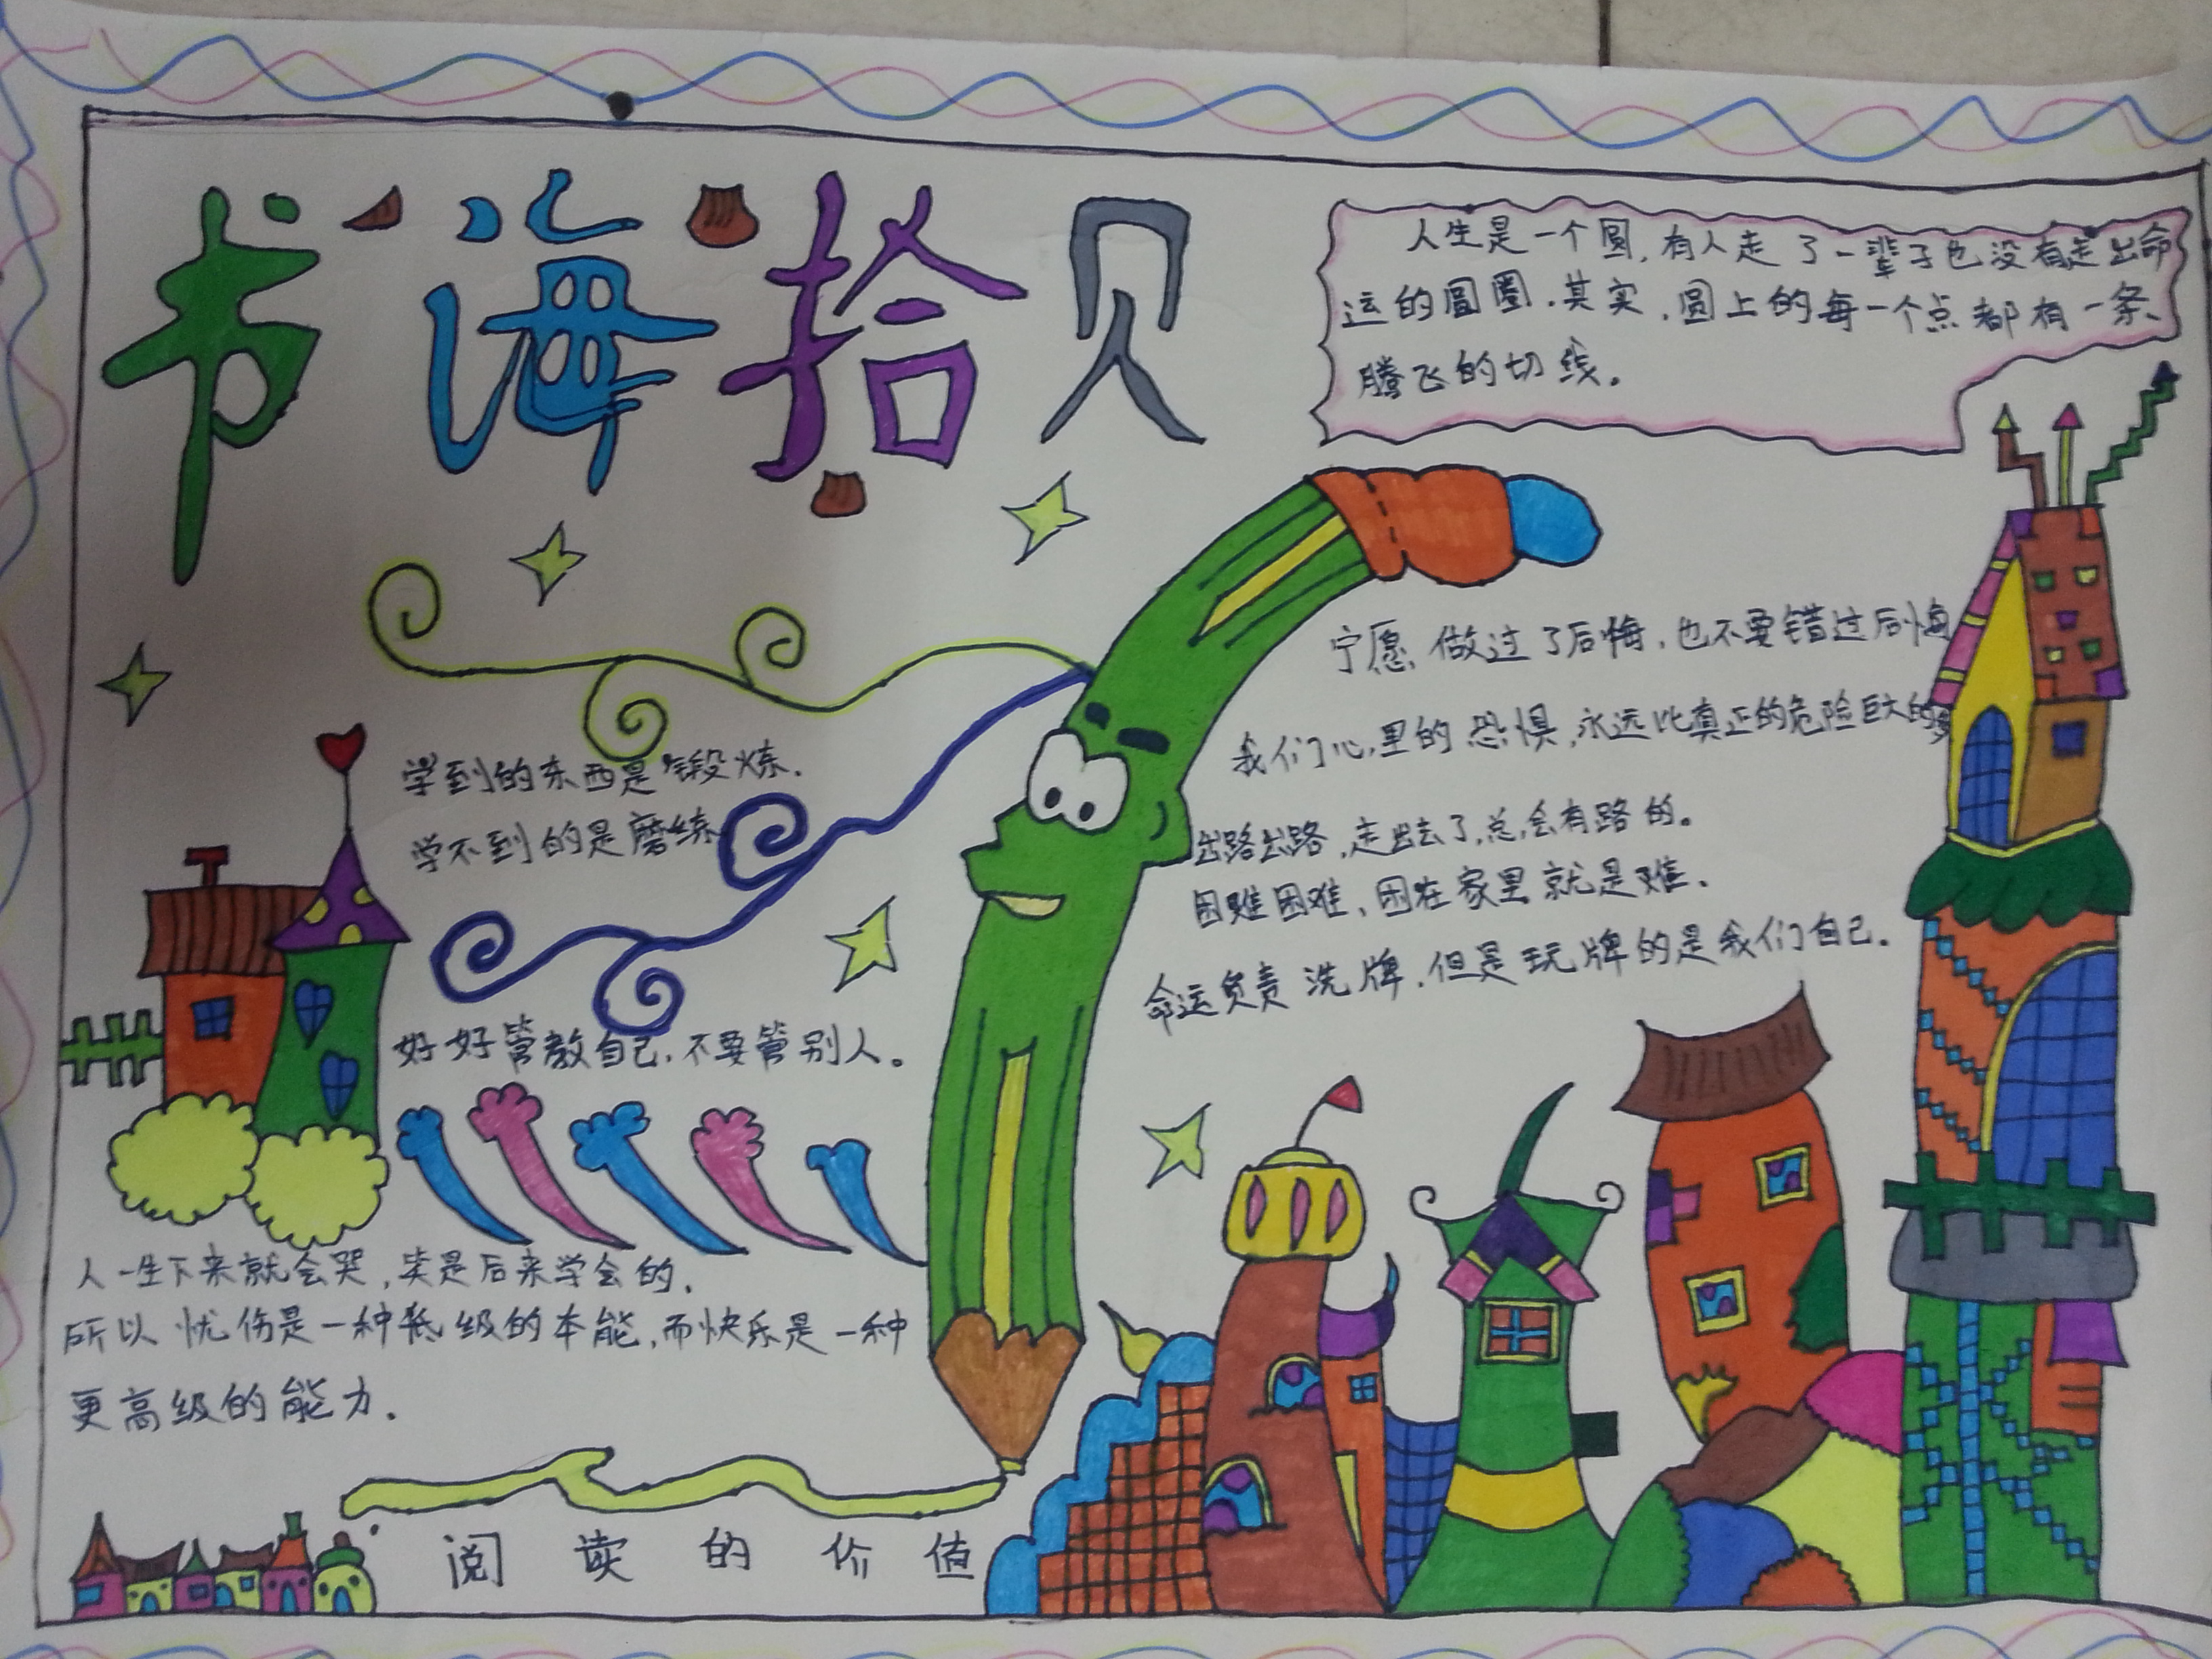 书海拾贝
人生是一个圆，有人走了一辈子也没有走出命
运的圆圈．其实．圆上的每一个点都有一条
腾飞的切线。
宁愿做过了后悔．也不要错过后悔
我们心里的恐惧，永远比真正的危险巨大的多
出路出路，走出去了，总会有路的。
困难困难，困在家里就是难．
命运负责洗牌，但是玩牌的是我们自己．
学到的东西是锻炼．
学不到的是磨练
好好管教自己，不要管别人。
人一生下来就会哭，笑是后来学会的．
所以忧伤是一种低级的本能，而快乐是一种
更高级的能力．
阅读的价值